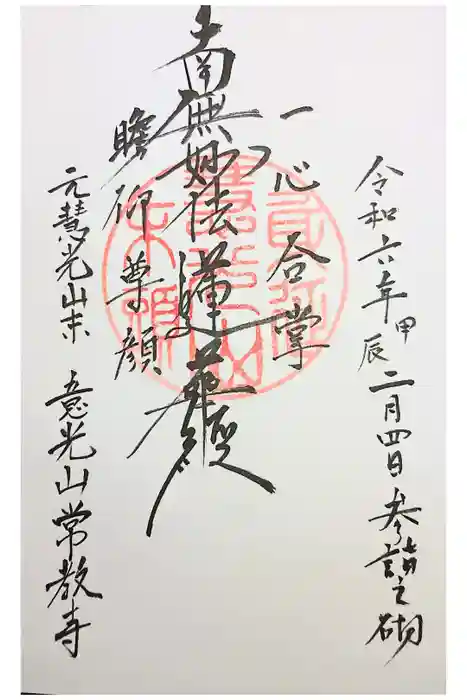 令和六年甲辰二月四日参詣之砌
一心合掌
南無妙法蓮華経
瞻仰尊顔
元慧光山末 意光山常教寺